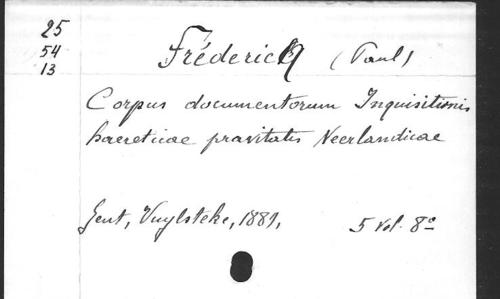 25
54
13
Fréderick (Paul)
Corpus documentorum Inquisitionis
haereticae pravitatis Neerlandicae
Gent, Vuylsteke, 1889,
5 vol. 8º